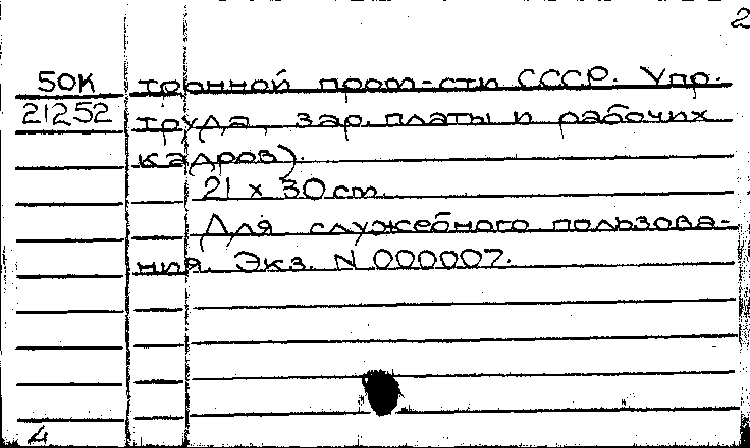 2
50К тронной пром-сти СССР. Упр.
21252 труда, зар. платы и рабочих
кадров).
21 х 30 см.
Для служебного пользова-
ния. Экз. N 000007.
4